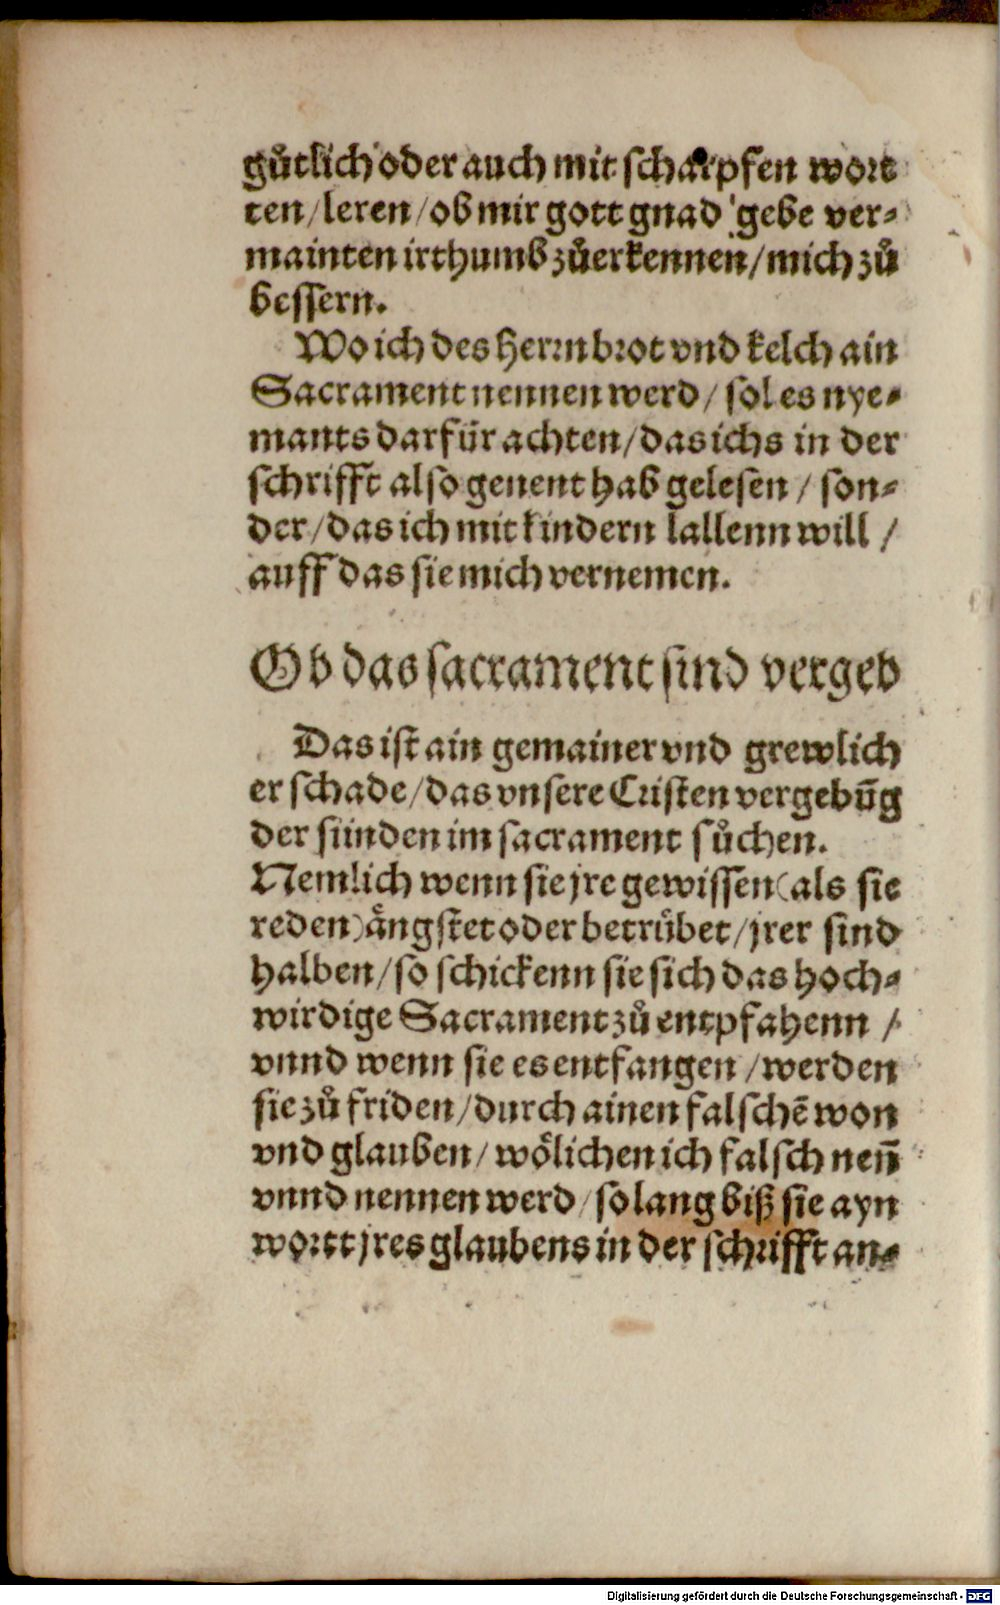 gůtlich oder auch mit scharpfen wort
ten/leren/ob mir gott gnad gebe ver-
mainten irthumb zůerkennen/mich zů
bessern.
Wo ich des Herrn brot vnd kelch ain
Sacrament nennen werd/sol es nye-
mants darfür achten/das ichs in der
schrifft also genent hab gelesen/son-
der/das ich mit kindern lallenn will/
auff das sie mich vernemen.
Ob das sacrament sind vergeb
Das ist ain gemainer vnd grewlich
er schade/das vnsere Cristen vergebūg
der sünden im sacrament sůchen.
Nemlich wenn sie jre gewissen(als sie
reden)ängstet oder betrübet/jrer sind
halben/so schickenn sie sich das hoch-
wirdige Sacrament zů entpfahenn/
vnnd wenn sie es entfangen/werden
sie zů friden/durch ainen falschē won
vnd glauben/wölichen ich falsch neñ
vnnd nennen werd/so lang biß sie ayn
wortt jres glaubens in der schrifft an-
Digitalisierung gefördert durch die Deutsche Forschungsgemeinschaft - DFG